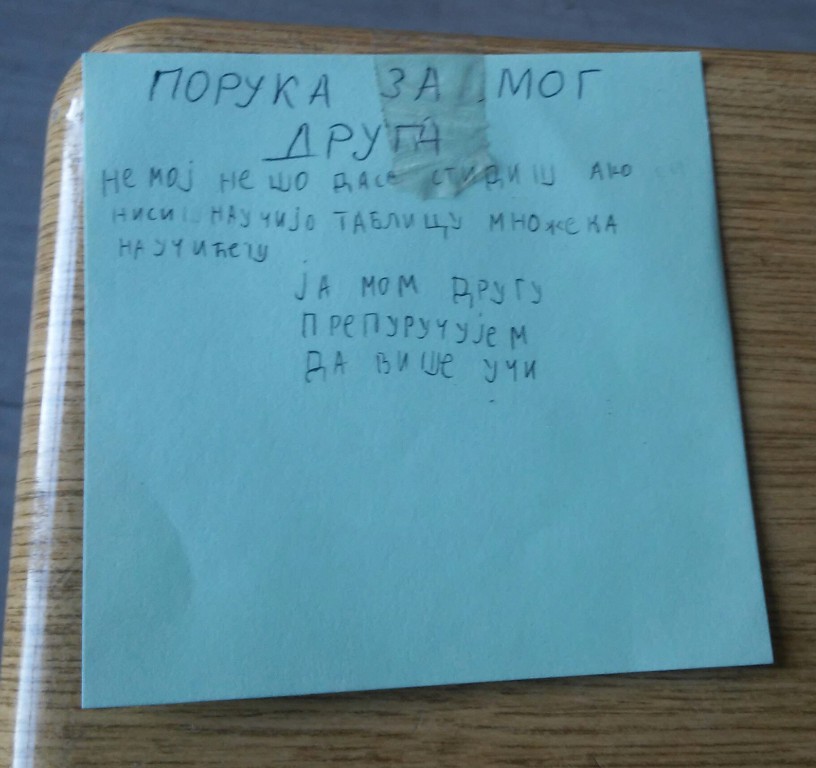 ПОРУКА ЗА МОГ
ДРУГА
НЕ МОЈ НЕ ШО ДАСЕ СТИДИШ АКО
НИСИ НАУЧИЈО ТАБЛИЦУ МНОЖЕКА
НАУЧИЋЕШ
ЈА МОМ ДРУГУ
ПРЕПУРУЧУЈЕМ
ДА ВИШЕ УЧИ